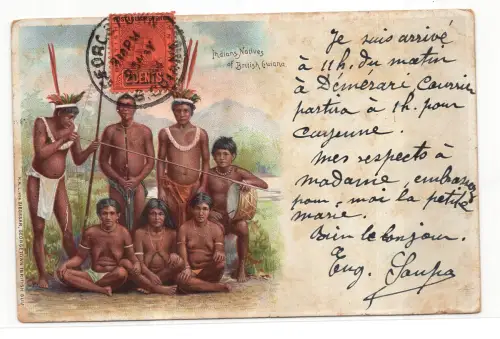 2 CENTS
Indians, Natives
of British Guiana.
Je suis arrivé
à 11h. du matin
à Démérare, Courrier
partira à 1h. pour
Cayenne.
Mes respects à
madame, embrassez
pour moi la petite
marie.
Bien le bonjour.
Eug.